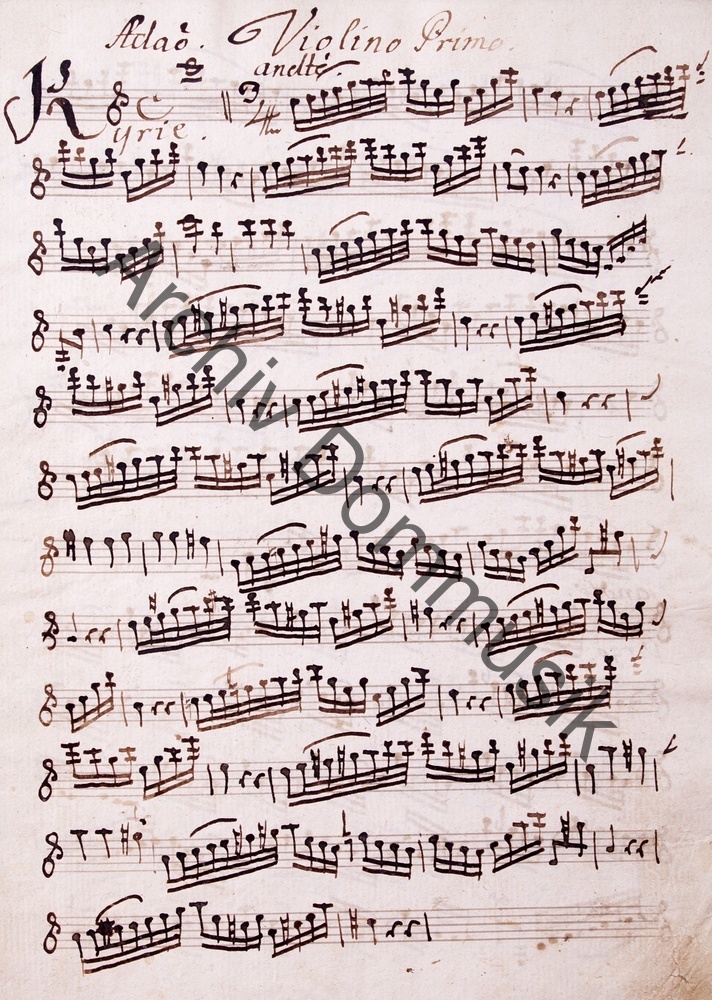 Adaō. Violino Primo.
andte.
Kyrie.
C 3/4
Archiv Dommusik